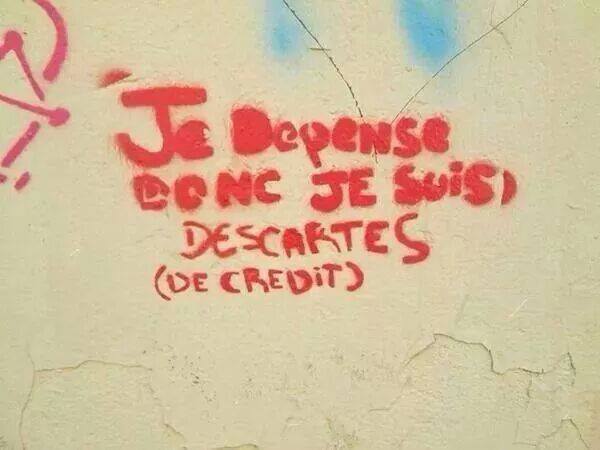 Je Depense
DONC JE SUiS)
DESCARTES
(DE CREDiT)